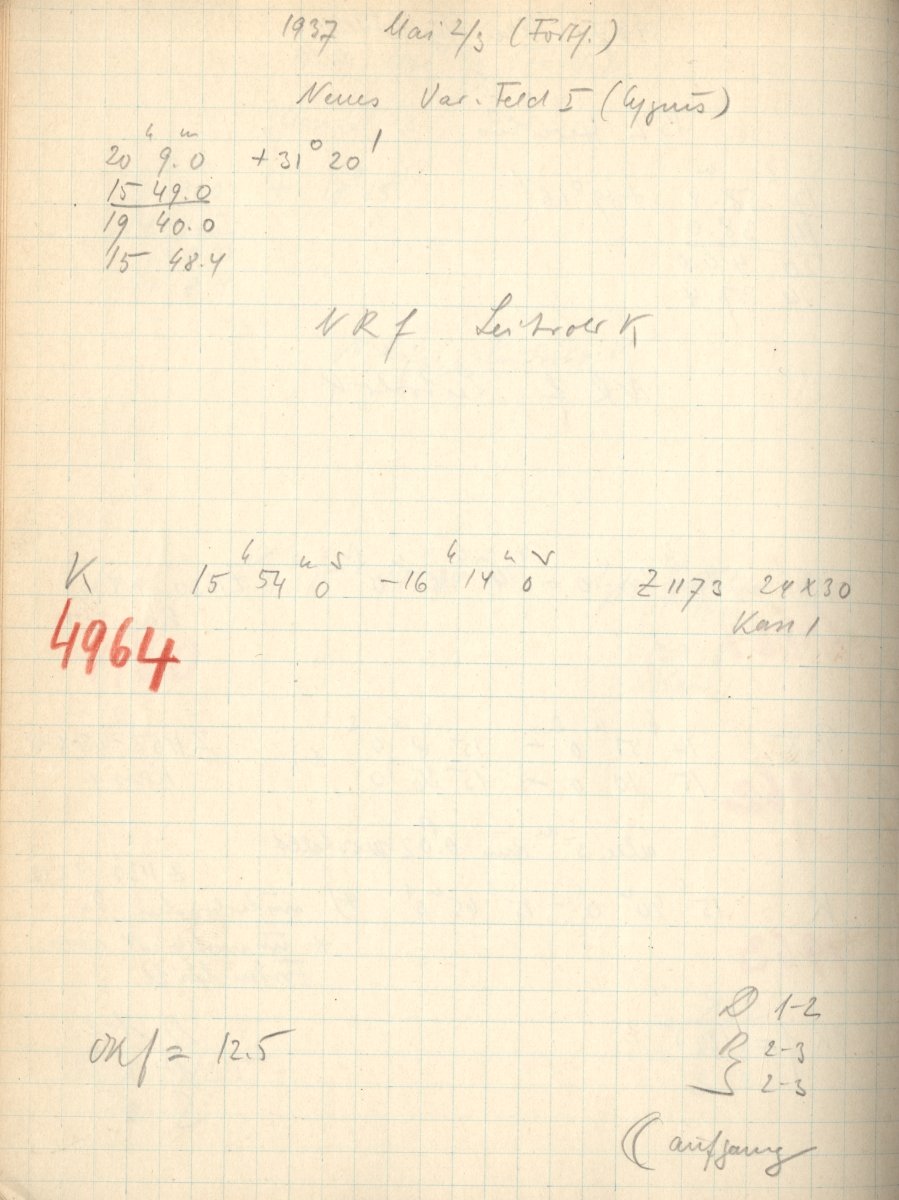 1937 Mai 2/3 (Fortf.)
Neues Var. Feld I (Cygnus)
20ʰ 9.0ᵐ +31° 20'
15 49.0
19 40.0
15 48.4
NRf K
K 15ʰ 54ᵐ 0ˢ -16ʰ 14ᵐ 0ˢ Z 1173 24×30
4964 Kass 1
Okf = 12.5
D 1-2
R 2-3
S 2-3
(( aufgang